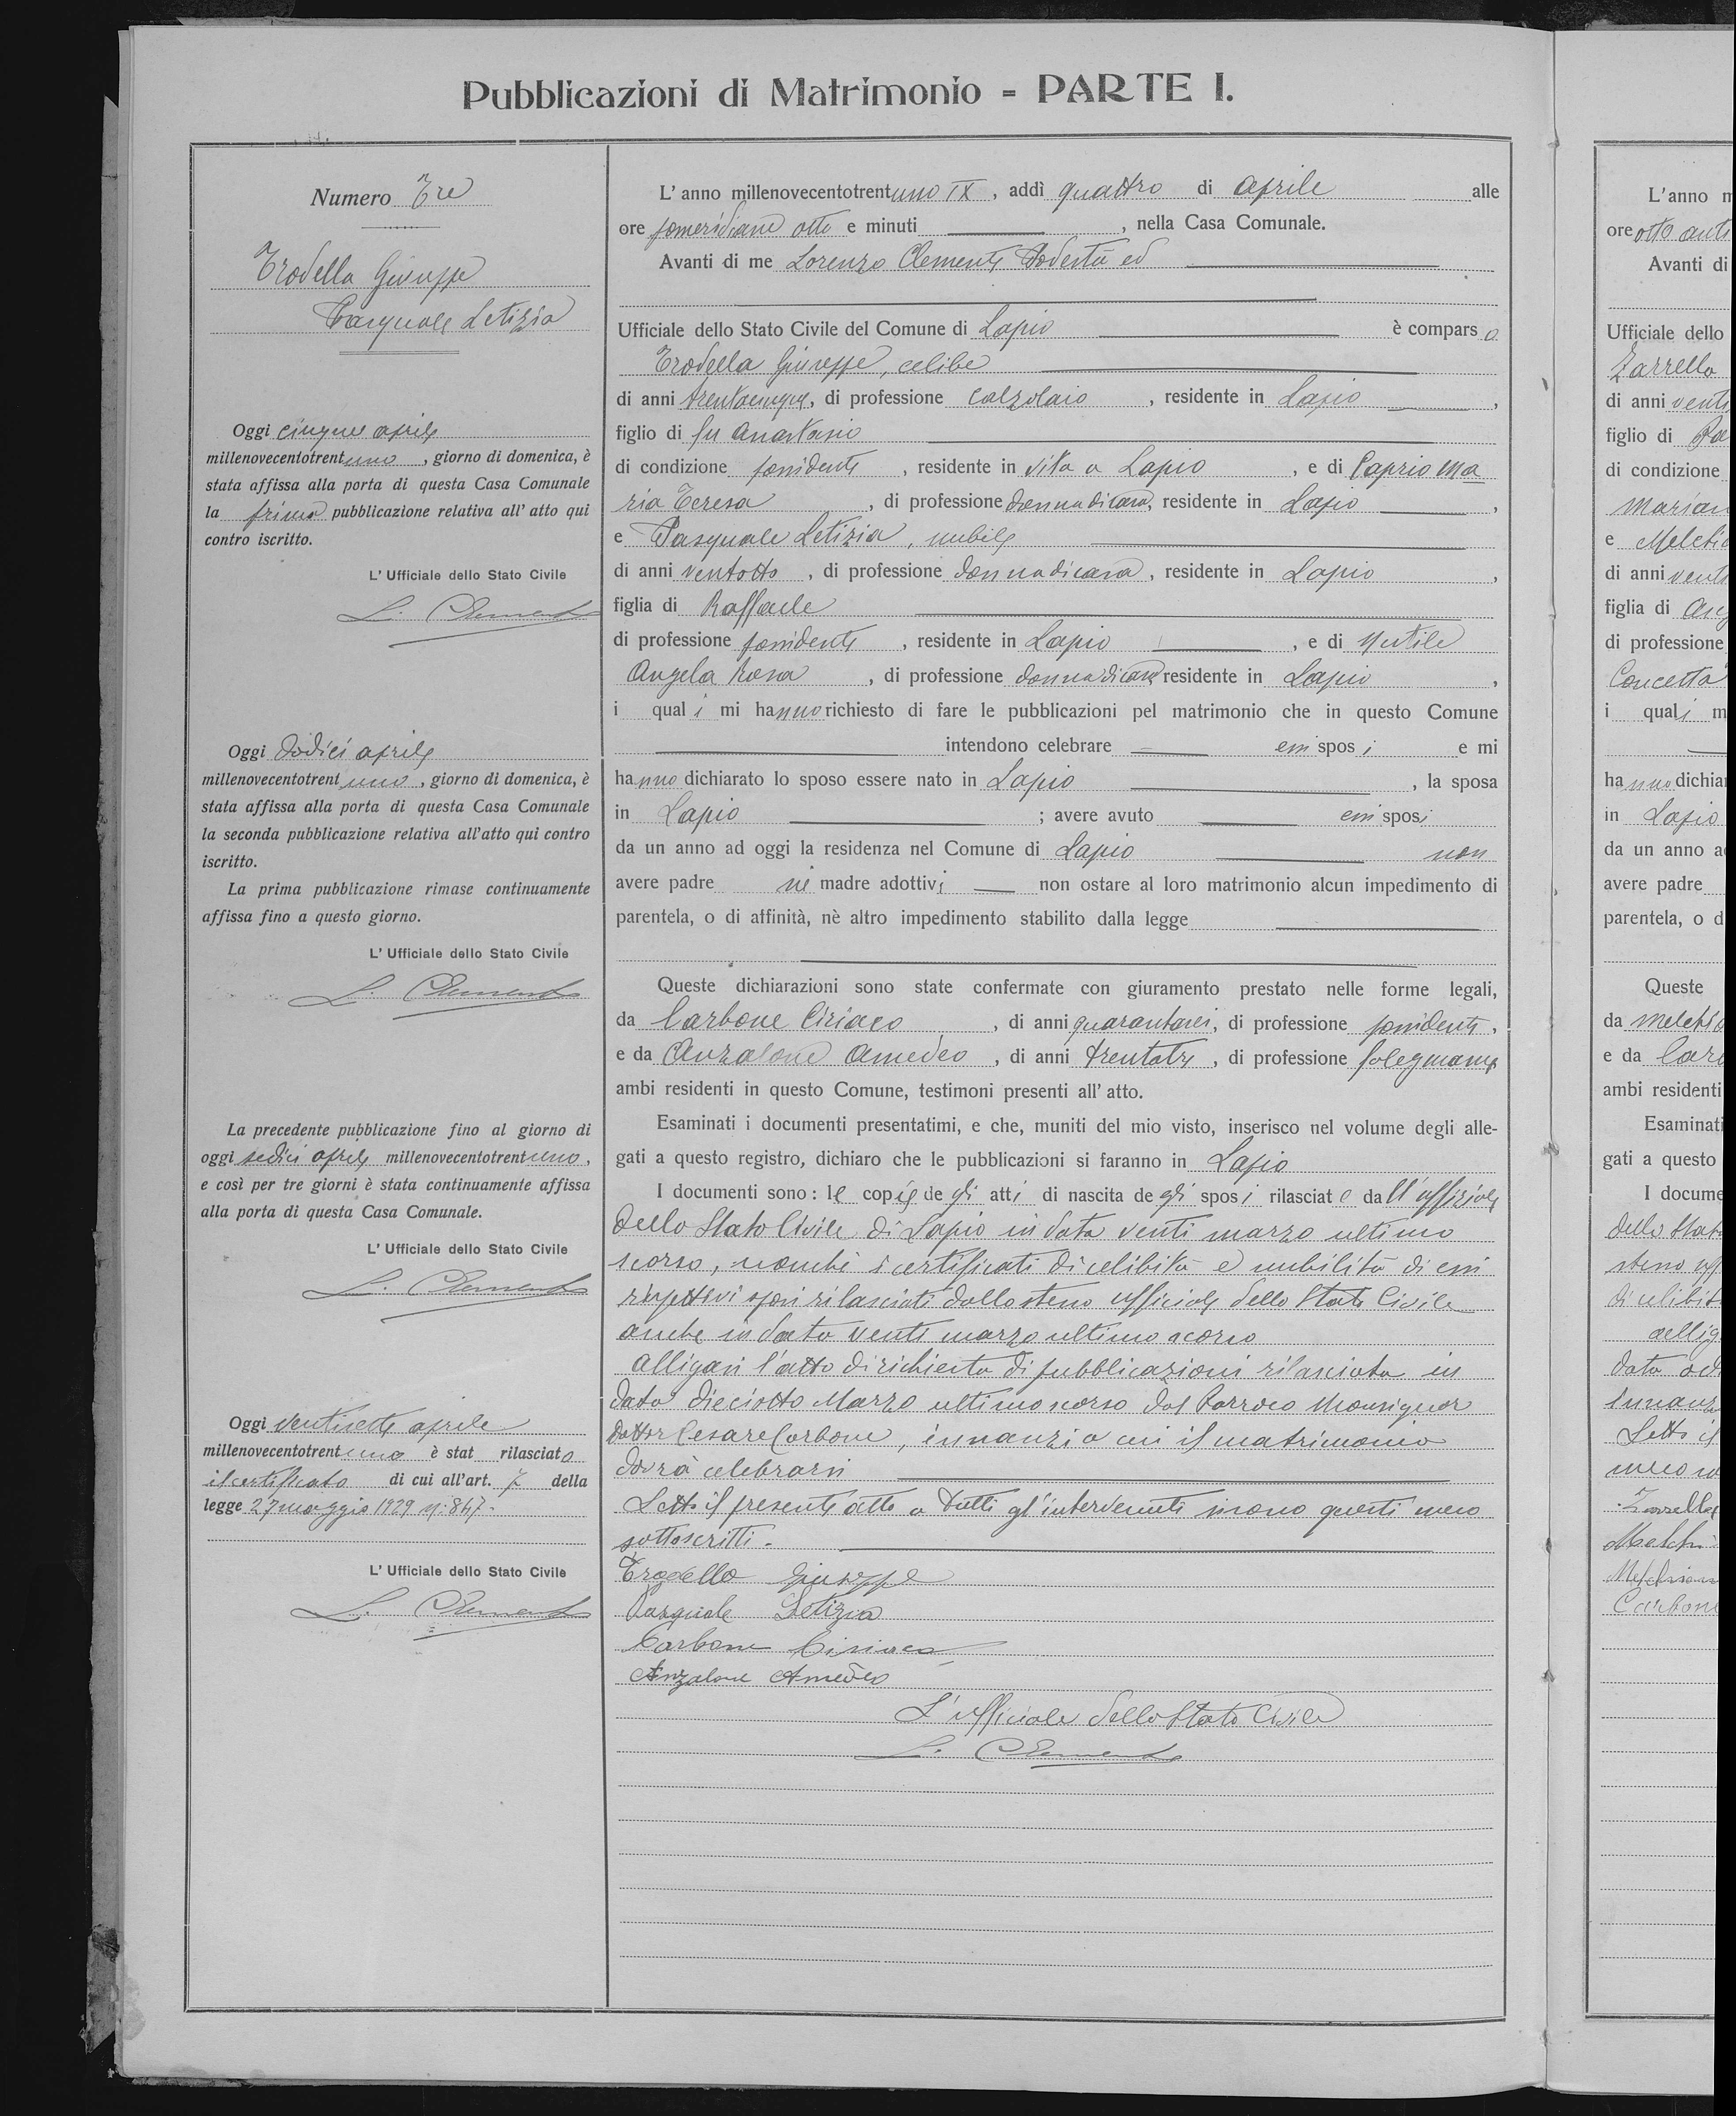 Pubblicazioni di Matrimonio = PARTE I.
Numero Tre
Trodella Giuseppe
Pasquale Letizia
Oggi cinque aprile
millenovecentotrentuno, giorno di domenica, è
stata affissa alla porta di questa Casa Comunale
la prima pubblicazione relativa all'atto qui
contro iscritto.
L'Ufficiale dello Stato Civile
L. Clemente
Oggi dodici aprile
millenovecentotrentuno, giorno di domenica, è
stata affissa alla porta di questa Casa Comunale
la seconda pubblicazione relativa all'atto qui contro
iscritto.
La prima pubblicazione rimase continuamente
affissa fino a questo giorno.
L'Ufficiale dello Stato Civile
L. Clemente
La precedente pubblicazione fino al giorno di
oggi sedici aprile millenovecentotrentuno,
e così per tre giorni è stata continuamente affissa
alla porta di questa Casa Comunale.
L'Ufficiale dello Stato Civile
L. Clemente
Oggi ventisette aprile
millenovecentotrentuno è stat rilasciato
il certificato di cui all'art. 7 della
legge 27 maggio 1929 n: 847.
L'Ufficiale dello Stato Civile
L. Clemente
L'anno millenovecentotrentuno IX, addì quattro di aprile alle
ore pomeridiane otto e minuti , nella Casa Comunale.
Avanti di me Lorenzo Clemente Podestà ed
Ufficiale dello Stato Civile del Comune di Lapio è comparso
Trodella Giuseppe, celibe
di anni trentacinque, di professione calzolaio, residente in Lapio,
figlio di fu Anastasio
di condizione possidente, residente in vita a Lapio, e di Caprio Ma
ria Teresa, di professione donna di casa, residente in Lapio,
e Pasquale Letizia, nubile
di anni ventotto, di professione donna di casa, residente in Lapio,
figlia di Raffaele
di professione possidente, residente in Lapio, e di Mutile
Angela Rosa, di professione donna di casa residente in Lapio,
i quali mi hanno richiesto di fare le pubblicazioni pel matrimonio che in questo Comune
intendono celebrare essi sposi e mi
hanno dichiarato lo sposo essere nato in Lapio, la sposa
in Lapio; avere avuto essi sposi
da un anno ad oggi la residenza nel Comune di Lapio non
avere padre nè madre adottivi non ostare al loro matrimonio alcun impedimento di
parentela, o di affinità, nè altro impedimento stabilito dalla legge
Queste dichiarazioni sono state confermate con giuramento prestato nelle forme legali,
da Carbone Ciriaco, di anni quarantasei, di professione possidente,
e da Anzalone Amedeo, di anni trentatre, di professione falegname
ambi residenti in questo Comune, testimoni presenti all'atto.
Esaminati i documenti presentatimi, e che, muniti del mio visto, inserisco nel volume degli alle-
gati a questo registro, dichiaro che le pubblicazioni si faranno in Lapio
I documenti sono: le copie degli atti di nascita degli sposi rilasciate dall'uffiziale
dello Stato Civile di Lapio in data venti marzo ultimo
scorso, nonchè i certificati di celibità e nubilità di essi
rispettivi sposi rilasciati dallo stesso ufficiale dello Stato Civile
anche in data venti marzo ultimo scorso
Alligasi l'atto di richiesta di pubblicazioni rilasciata in
data dieciotto Marzo ultimo scorso dal Parroco Monsignor
Dottor Cesare Carbone, innanzi a cui il matrimonio
dovrà celebrarsi
Letto il presente atto a tutti gl'intervenuti si sono questi meco
sottoscritti.
Trodella Giuseppe
Pasquale Letizia
Carbone Ciriaco
Anzalone Amedeo
L'ufficiale dello Stato Civile
L. Clemente
L'anno
ore otto
Avanti di
Ufficiale dello
Zarrella
di anni
figlio di
di condizione
e
di anni
figlia di
di professione
Concetta
i quali
hanno
in Lapio
da un anno
avere padre
parentela, o
Queste
da
e da
ambi residenti
Esaminati
gati a questo
I
dello
Letto il